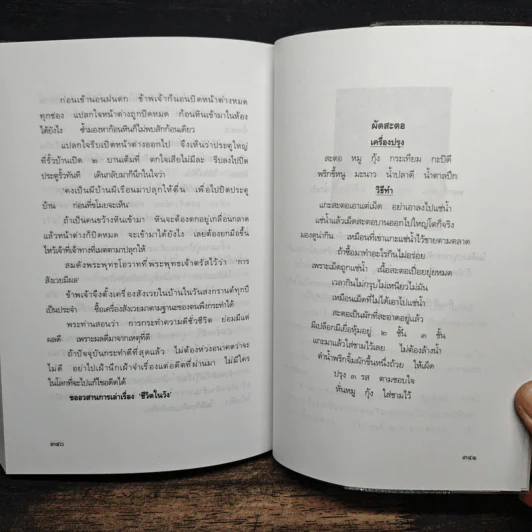 ก่อนเข้านอนฝนตก ข้าพเจ้าก็นอนปิดหน้าต่างหมด
ทุกช่อง แปลกใจหน้าต่างถูกปิดหมด ก้อนหินเข้ามาในห้อง
ได้ยังไง ซ้ำมองหาก้อนหินก็ไม่พบสักก้อนเดียว
แปลกใจรีบเปิดหน้าต่างออกไป จึงเห็นว่าประตูใหญ่
ที่รั้วบ้านเปิด ๒ บานเต็มที่ ตกใจเสียไม่มีละ รีบลงไปปิด
ประตูรั้วทันที เดินกลับมาก็นึกในใจว่า
'คงเป็นผีบ้านผีเรือนมาปลุกให้ตื่น เพื่อไปปิดประตู
บ้าน ก่อนที่ขโมยจะเห็น'
ถ้าเป็นคนขว้างหินเข้ามา หินจะต้องตกอยู่เกลื่อนกลาด
แล้วหน้าต่างก็ปิดหมด จะเข้ามาได้ยังไง เลยต้องยกมือขึ้น
ไหว้เจ้าที่เจ้าทางที่เมตตามาปลุกให้
สมดังพระพุทธโอวาทที่พระพุทธเจ้าตรัสไว้ว่า 'การ
สังเวยมีผล'
ข้าพเจ้าจึงตั้งเครื่องสังเวยในบ้านในวันสงกรานต์ทุกปี
เป็นประจำ ซื้อเครื่องสังเวยมาตามฐานะของตนพึงกระทำได้
พระท่านสอนว่า การกระทำความดีชั่วชีวิต ย่อมมีแต่
ผลดี เพราะผลดีมาจากเหตุที่ดี
ถ้าปัจจุบันกระทำดีที่สุดแล้ว ไม่ต้องห่วงอนาคตว่าจะ
ไม่ดี อย่าไปเฝ้านึกเฝ้าจำเรื่องแต่อดีตที่ผ่านมา ไม่มีใคร
ในโลกที่จะไปแก้ไขอดีตได้
ขออวสานการเล่าเรื่อง 'ชีวิตในวัง'
๓๔๐
ผัดสะตอ
เครื่องปรุง
สะตอ หมู กุ้ง กระเทียม กะปิดี
พริกขี้หนู มะนาว น้ำปลาดี น้ำตาลปึก
วิธีทำ
แกะสะตอเอาแต่เม็ด อย่าเอาลงไปแช่น้ำ
แช่น้ำแล้วเม็ดสะตอบานออกไปใหญ่โตก็จริง
มองดูน่ากิน เหมือนที่เขาแกะแช่น้ำไว้ขายตามตลาด
ถ้าซื้อมาทำอะไรกินไม่อร่อย
เพราะเม็ดถูกแช่น้ำ เนื้อสะตอเปื่อยยุ่ยหมด
เวลากินไม่กรุบไม่เหนียวไม่มัน
เหมือนเม็ดที่ไม่ได้เอาไปแช่น้ำ
สะตอเป็นผักที่สะอาดอยู่แล้ว
มีเปลือกมีเยื่อหุ้มอยู่ ๒ ชั้น ๓ ชั้น
แกะมาแล้วใส่ชามไว้เลย ไม่ต้องล้างน้ำ
ตำน้ำพริกจิ้มผักขึ้นหนึ่งถ้วย ให้เผ็ด
ปรุง ๓ รส ตามชอบใจ
หั่นหมู กุ้ง ใส่ชามไว้
๓๔๑